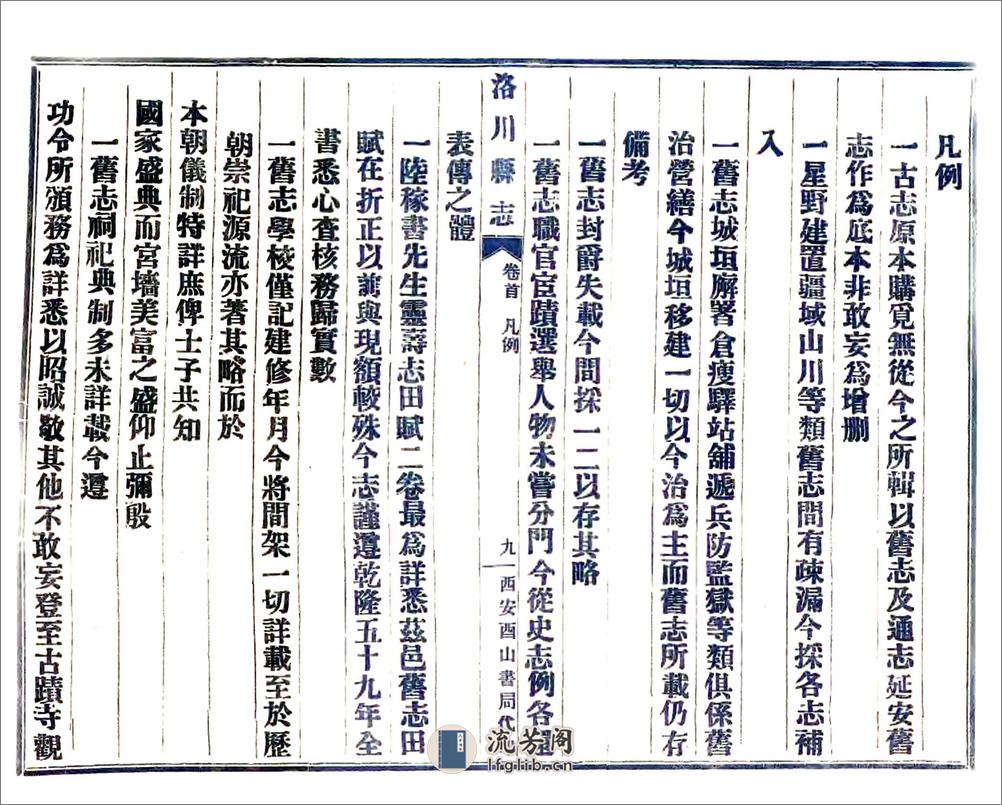 凡例
一古志原本購覓無從今之所輯以舊志及通志延安舊
志作爲底本非敢妄爲增刪
一星野建置疆域山川等類舊志間有疎漏今採各志補
入
一舊志城垣廨署倉廋驛站舖遞兵防監獄等類俱係舊
治營繕今城垣移建一切以今治爲主而舊志所載仍存
備考
一舊志封爵失載今間採一二以存其略
一舊志職官宦蹟選舉人物未嘗分門今從史志例各還
表傳之體
洛川縣志
卷首 凡例
九
西安酉山書局代
一陸稼書先生靈壽志田賦二卷最爲詳悉茲邑舊志田
賦在折正以前與現額較殊今志謹遵乾隆五十九年全
書悉心査核務歸實數
一舊志學校僅記建修年月今將間架一切詳載至於歷
朝崇祀源流亦著其略而於
本朝儀制特詳庶俾士子共知
國家盛典而宮墻美富之盛仰止彌殷
一舊志祠祀典制多未詳載今遵
功令所頒務爲詳悉以昭誠敬其他不敢妄登至古蹟寺觀
流芳阁
lfglib.cn